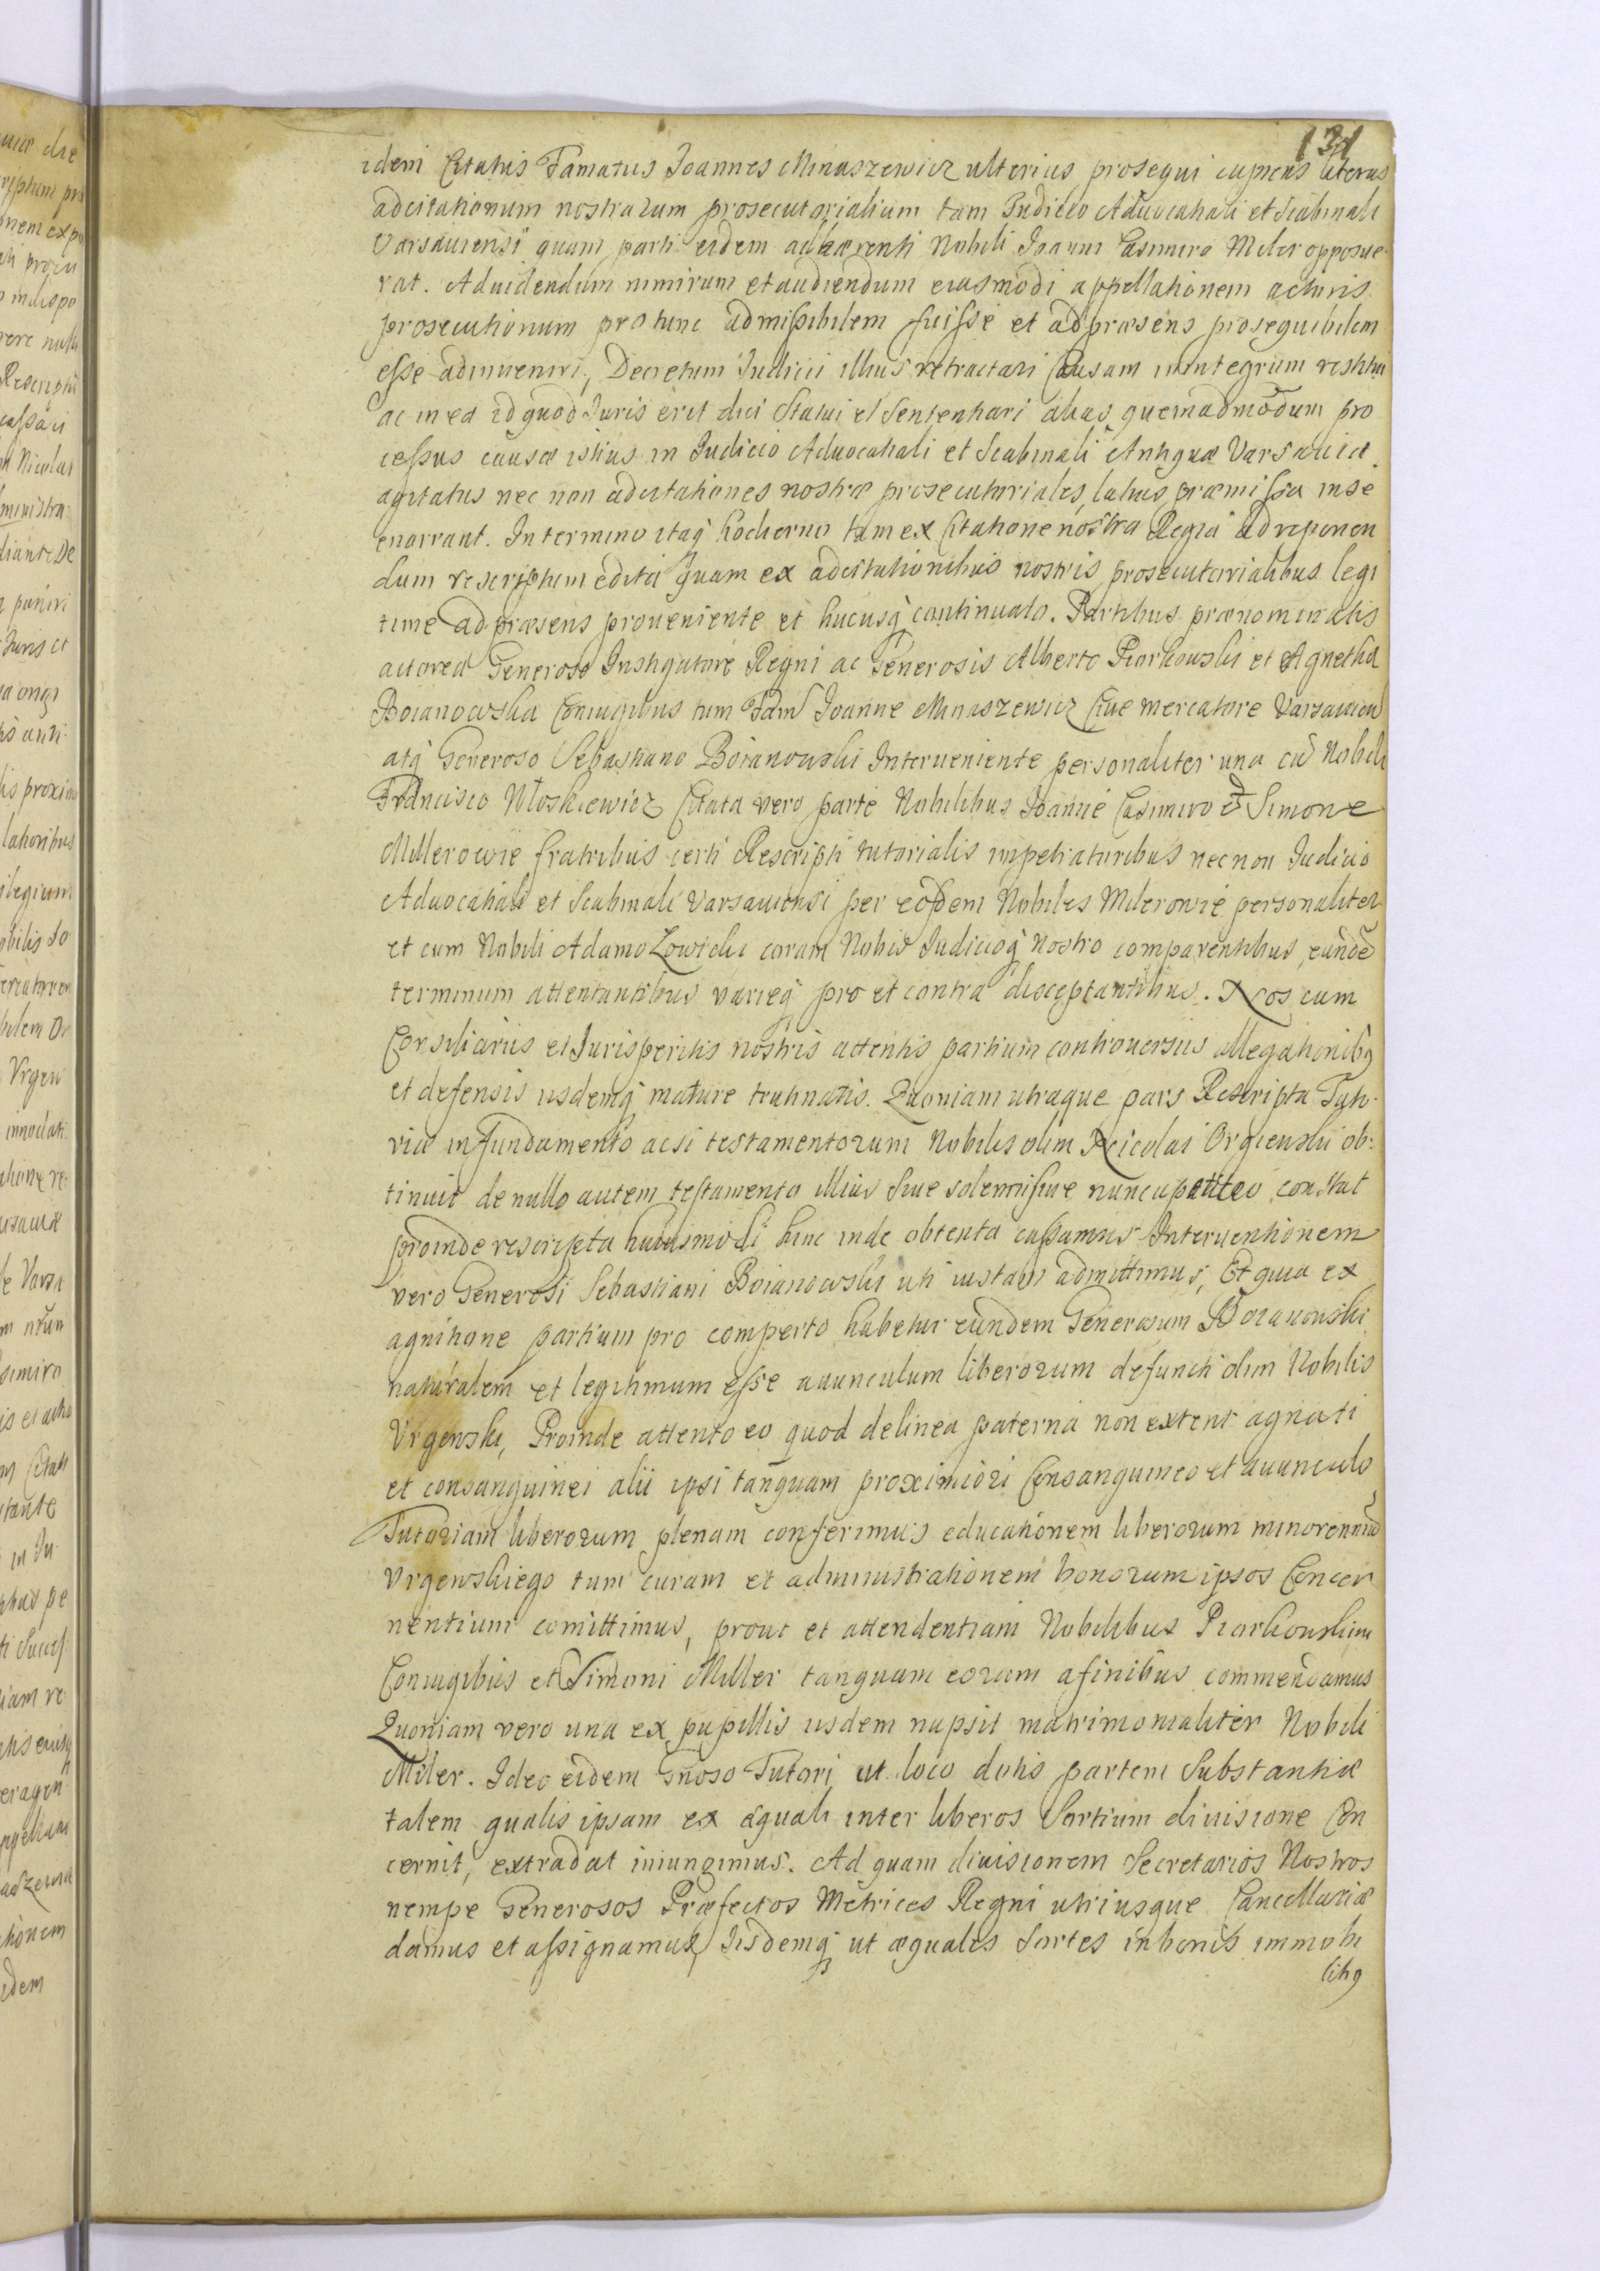 131
idem Citatus Famatus Joannes Minaszewicz ulterius prosequi cupiens literas
adcitationum nostrarum prosecutorialium tam Judicio Advocatiali et Scabinali
Varsauiensi quam parti eidem adhærenti Nobili Joanni Casimiro Miler opposue
rat. Ad uidendum nimirum et audiendum eiusmodi appellationem acturis
prosecutionum pro tunc admissibilem fuisse et ad præsens prosequibilem
esse adinueniri, Decretum Judicii illius retractari Causam in integrum restitui
ac in ea id quod Juris erit dici Statui et Sententiari alias quemadmodum pro
cessus causæ istius in Judicio Aduocatiali et Scabinali Antiquæ Varsauiæ
agitatus nec non adcitationes nostræ prosecutoriales, latius præmissa in se
enarrant. In termino itaq hodierno tam ex Citatione nostra Regia ad reponen
dum rescriptum edita quam ex adcitationibus nostris prosecutorialibus legi
time ad præsens proueniente et hucusq continuato. Partibus prænominatis
actorea Generoso Instigatore Regni ac Generosis Alberto Piorkowski et Agnetha
Boianowska Coniugibus tum Fam Joanne Minaszewicz Ciue mercatore Varsauien
atq Generoso Sebastiano Boianowski Interueniente personaliter una cū Nobili
Francisco Włoskiewicz Citata vero parte Nobilibus Joanne Casimiro et Simone
Millerowie fratribus certi Rescripti tutorialis impetratoribus nec non Judicio
Aduocatiali et Scabinali Varsauiensi per eosdem Nobiles Milerowie personaliter
et cum Nobili Adamo Łowicki coram Nobis Judicioq Nostro comparentibus, eundē
terminum attentantibus varieq pro et contra disceptantibus. Nos cum
Consiliariis et Jurisperitis nostris attentis partium controuersiis allegationibq
et defensis iisdemq mature trutinatis. Quoniam utraque pars Rescripta Tuto
ria in fundamento acsi testamentorum Nobilis olim Nicolai Orgienski ob:
tinuit de nullo autem testamento illius siue solenni siue nuncupatiuo constat
proinde rescripta huiusmodi hinc inde obtenta cassamus Interuentionem
vero Generosi Sebastiani Boianowski uti iustam admittimus, Et quia ex
agnitione partium pro comperto habetur eundem Generosum Boianowski
naturalem et legitimum esse auunculum liberorum defuncti olim Nobilis
Vrgenski, Proinde attento eo quod de linea paterna non extent agnati
et consanguinei alii ipsi tanquam proximiori Consanguineo et auunculo
Tutoriam liberorum plenam conferimus educationem liberorum minorenniū
Vrgewskiego tum curam et administrationem bonorum ipsos Concer
nentium comittimus, prout et attendentiam Nobilibus Piorkowskim
Coniugibus et Simoni Miller tanquam eorum afinibus commendamus
Quoniam vero una ex pupillis iisdem nupsit matrimonialiter Nobili
Miler. Ideo eidem Gnoso Tutori ut loco dotis partem Substantiæ
talem qualis ipsam ex æquali inter liberos Sortium diuisione Con
cernit, extradat iniungimus. Ad quam diuisionem Secretarios Nostros
nempe Generosos Præfectos Metrices Regni utriusque Cancellariæ
damus et assignamus, Iisdemq ut æquales Sortes in bonis immobi
libq